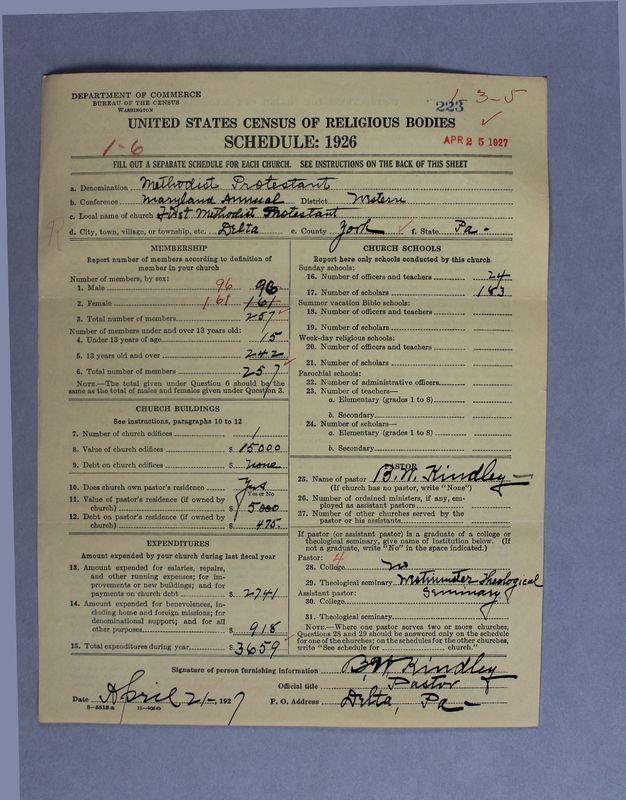 DEPARTMENT OF COMMERCE
BUREAU OF THE CENSUS
WASHINGTON
223
1-3-5
UNITED STATES CENSUS OF RELIGIOUS BODIES
SCHEDULE: 1926
1-6
APR 25 1927
FILL OUT A SEPARATE SCHEDULE FOR EACH CHURCH. SEE INSTRUCTIONS ON THE BACK OF THIS SHEET
a. Denomination Methodist Protestant
b. Conference Maryland Annual District Western
c. Local name of church First Methodist Protestant
d. City, town, village, or township, etc. Delta e. County York f. State Pa-
MEMBERSHIP
Report number of members according to definition of
member in your church
Number of members, by sex:
1. Male 96 96
2. Female 161 161
3. Total number of members 257
Number of members under and over 13 years old:
4. Under 13 years of age 15
5. 13 years old and over 242
6. Total number of members 257
NOTE.—The total given under Question 6 should be the
same as the total of males and females given under Question 3.
CHURCH BUILDINGS
See instructions, paragraphs 10 to 12
7. Number of church edifices 1
8. Value of church edifices $ 15000
9. Debt on church edifices $ none
10. Does church own pastor's residence Yes
Yes or No
11. Value of pastor's residence (if owned by
church) $ 5000
12. Debt on pastor's residence (if owned by
church) $ 475-
EXPENDITURES
Amount expended by your church during last fiscal year
13. Amount expended for salaries, repairs,
and other running expenses; for im-
provements or new buildings; and for
payments on church debt $ 2741
14. Amount expended for benevolences, in-
cluding home and foreign missions; for
denominational support; and for all
other purposes $ 918
15. Total expenditures during year $ 3659
CHURCH SCHOOLS
Report here only schools conducted by this church
Sunday schools:
16. Number of officers and teachers 24
17. Number of scholars 183
Summer vacation Bible schools:
18. Number of officers and teachers
19. Number of scholars
Week-day religious schools:
20. Number of officers and teachers
21. Number of scholars
Parochial schools:
22. Number of administrative officers
23. Number of teachers—
a. Elementary (grades 1 to 8)
b. Secondary
24. Number of scholars—
a. Elementary (grades 1 to 8)
b. Secondary
PASTOR
25. Name of pastor B.W. Kindley
(If church has no pastor, write "None")
26. Number of ordained ministers, if any, em-
ployed as assistant pastors
27. Number of other churches served by the
pastor or his assistants
If pastor (or assistant pastor) is a graduate of a college or
theological seminary, give name of institution below. (If
not a graduate, write "No" in the space indicated.)
Pastor: 4
28. College No
29. Theological seminary Westminster Theological
Assistant pastor: Seminary
30. College
31. Theological seminary
NOTE.—Where one pastor serves two or more churches,
Questions 28 and 29 should be answered only on the schedule
for one of the churches; on the schedules for the other churches,
write "See schedule for church."
Signature of person furnishing information B.W. Kindley
Official title Pastor
Date April 21-, 1927 P. O. Address Delta, Pa-